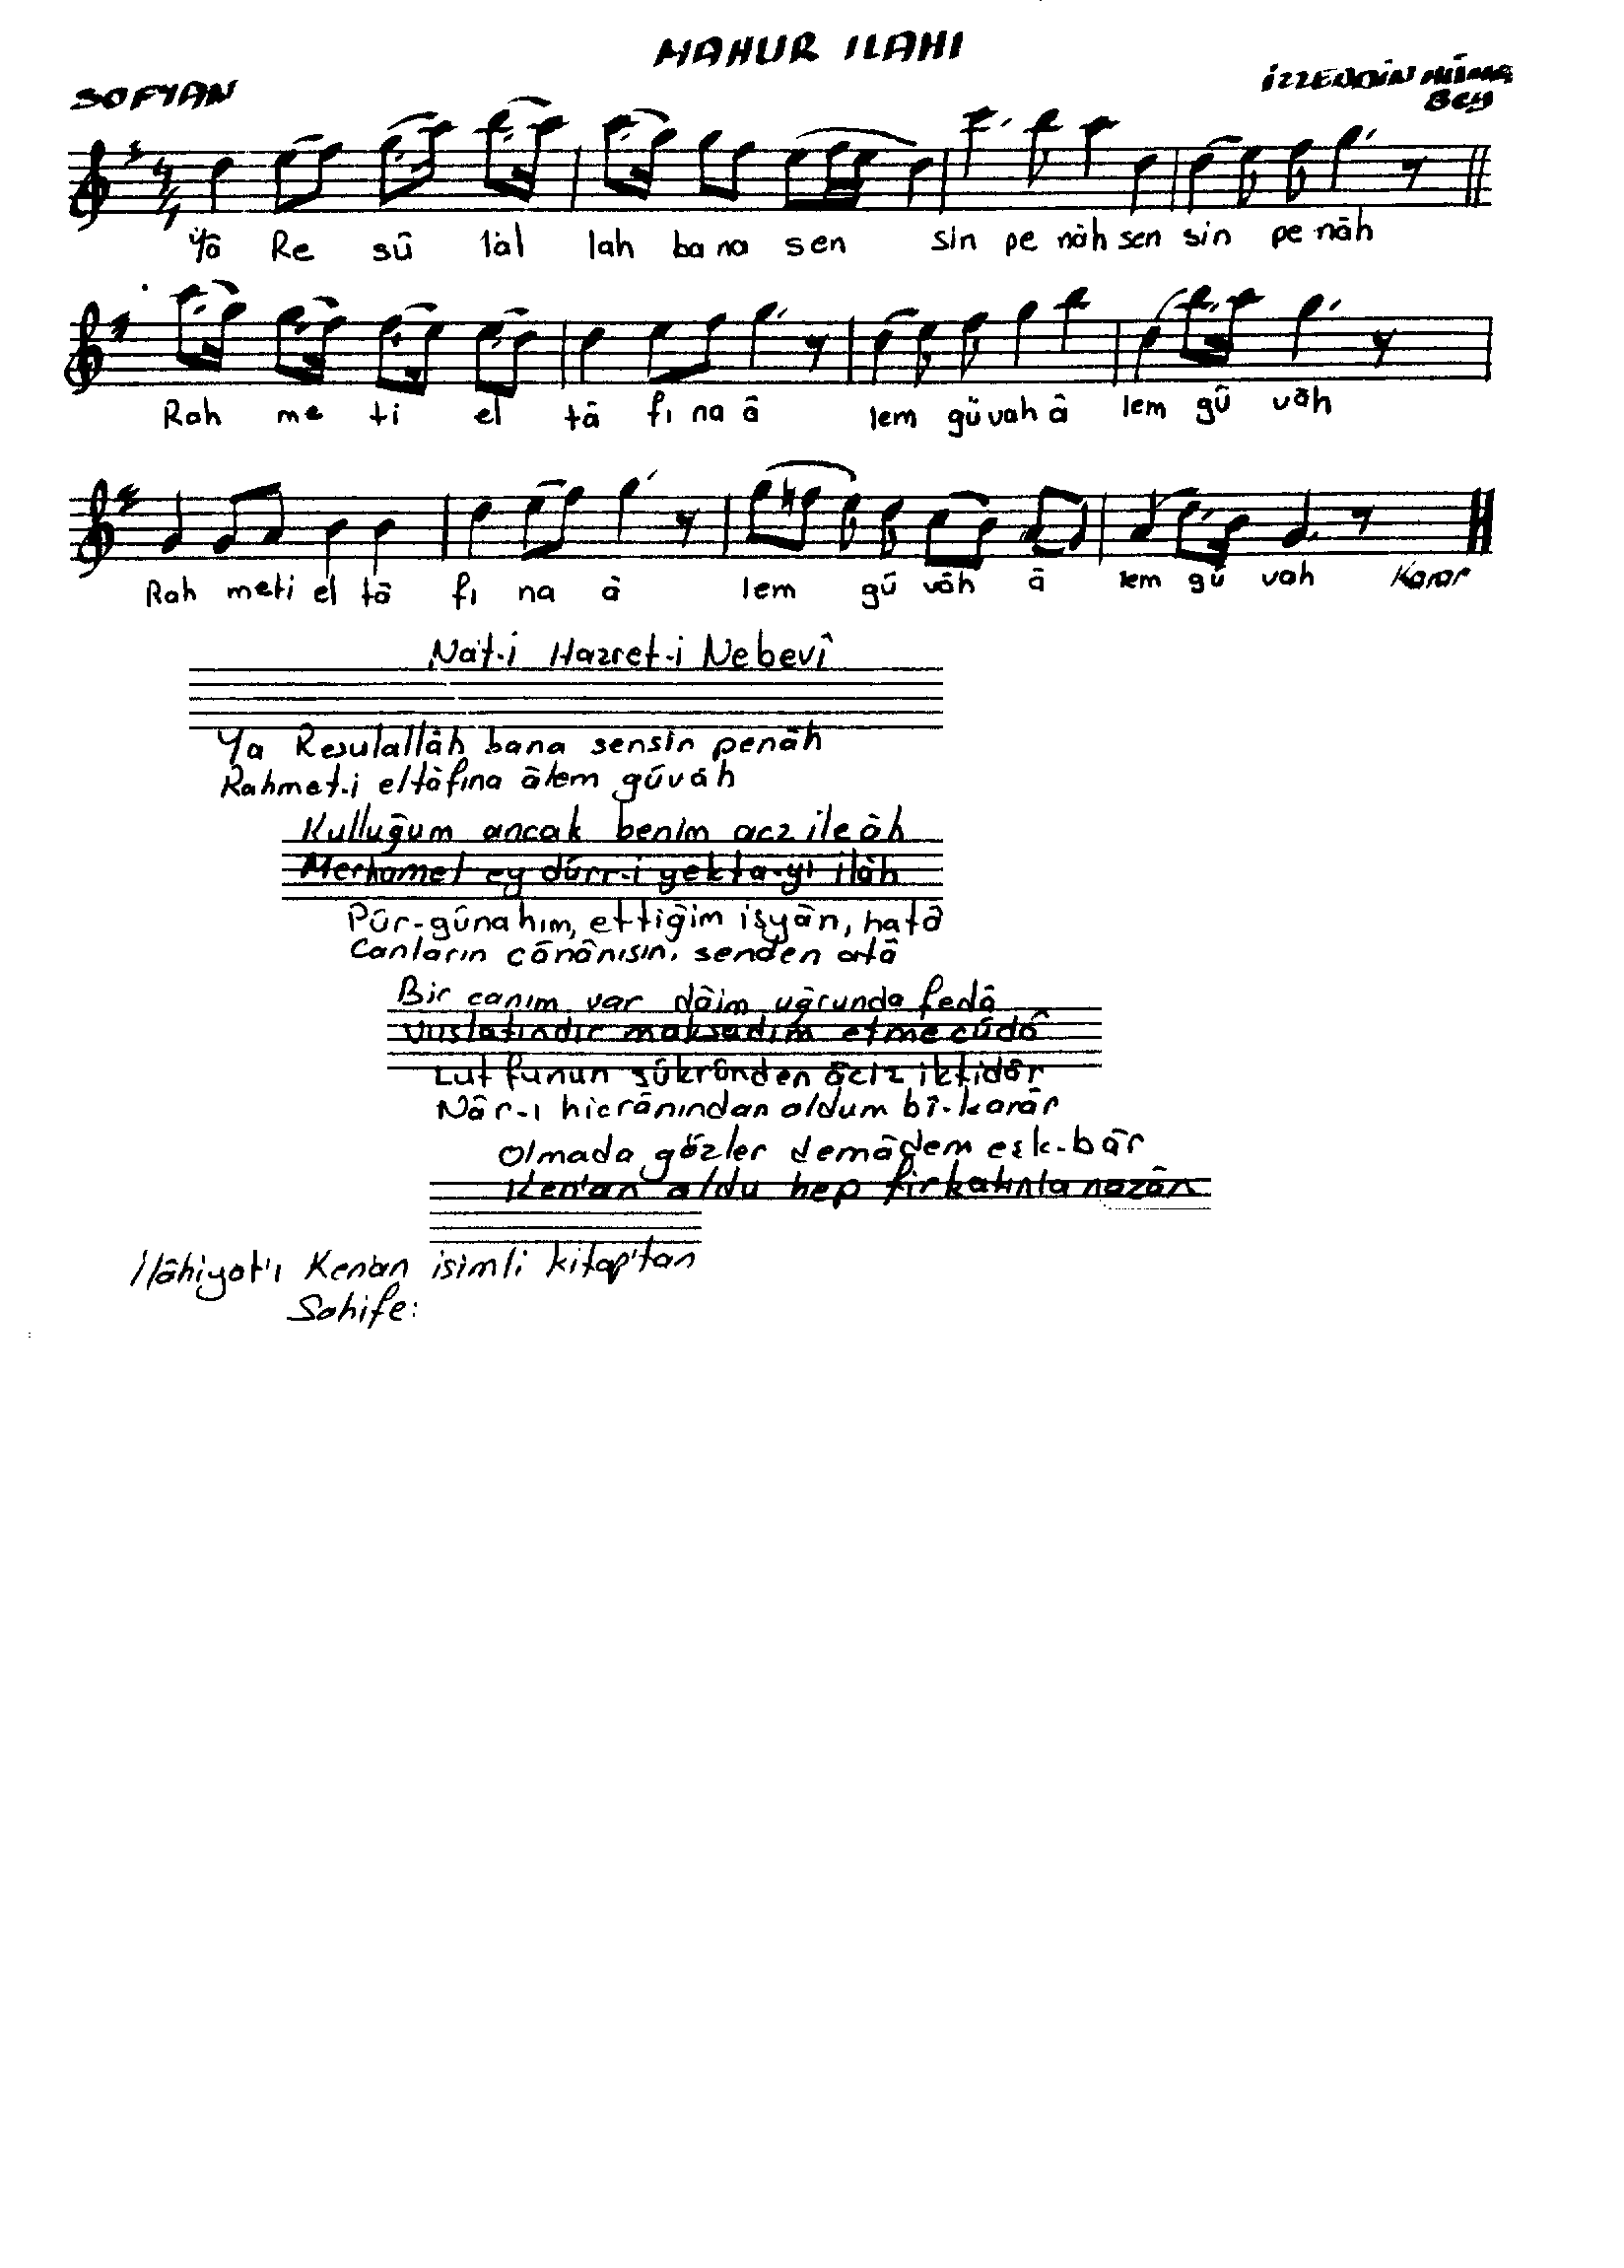 MAHUR ILAHI
SOFYAN
İZZEDDİN HÜMA
Bey
Yâ Re sû lâl lah ba na sen sin pe nâh sen sin pe nâh
Rah me ti el tâ fı na â lem gü vah â lem gû vâh
Rah meti el tâ fı na â lem gû vâh â lem gû vah Karar
Na't-i Hazret-i Nebevî
Ya Resulallâh bana sensin penâh
Rahmet-i eltâfına âlem gûvâh
Kulluğum ancak benim acz ile âh
Merhamet ey dürr-i yekta-yı ilâh
Pûr-gûnahım, ettiğim işyân, hatâ
Canların cânânısın, senden atâ
Bir canım var dâim uğrunda fedâ
Vuslatındır maksadım etme cûdâ
Lutfunun şûkrûnden âciz iktidâr
Nâr-ı hicrânından oldum bî-karâr
Olmada gözler demâdem eşk-bâr
Ken'an oldu hep firkatınla nazân
İlâhiyat'ı Ken'an isimli kitap'tan
Sahife: